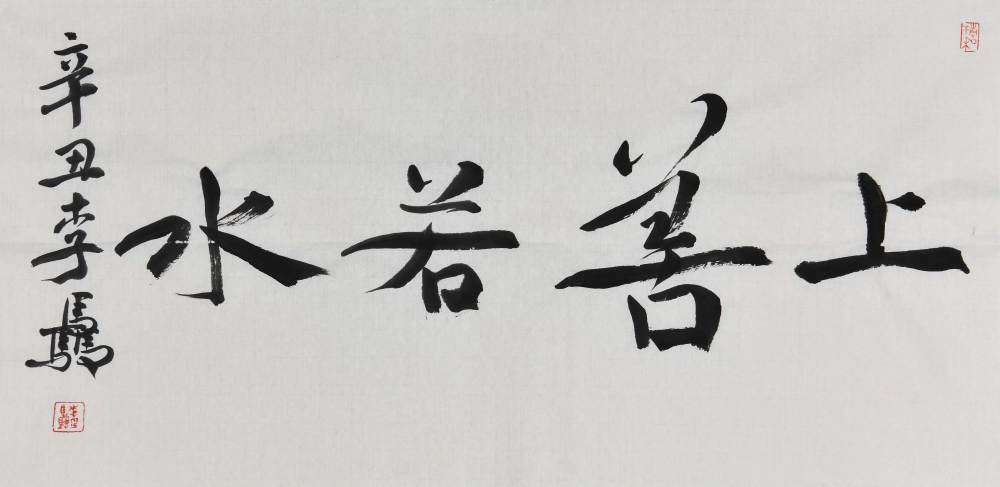 上善若水
辛丑李驫